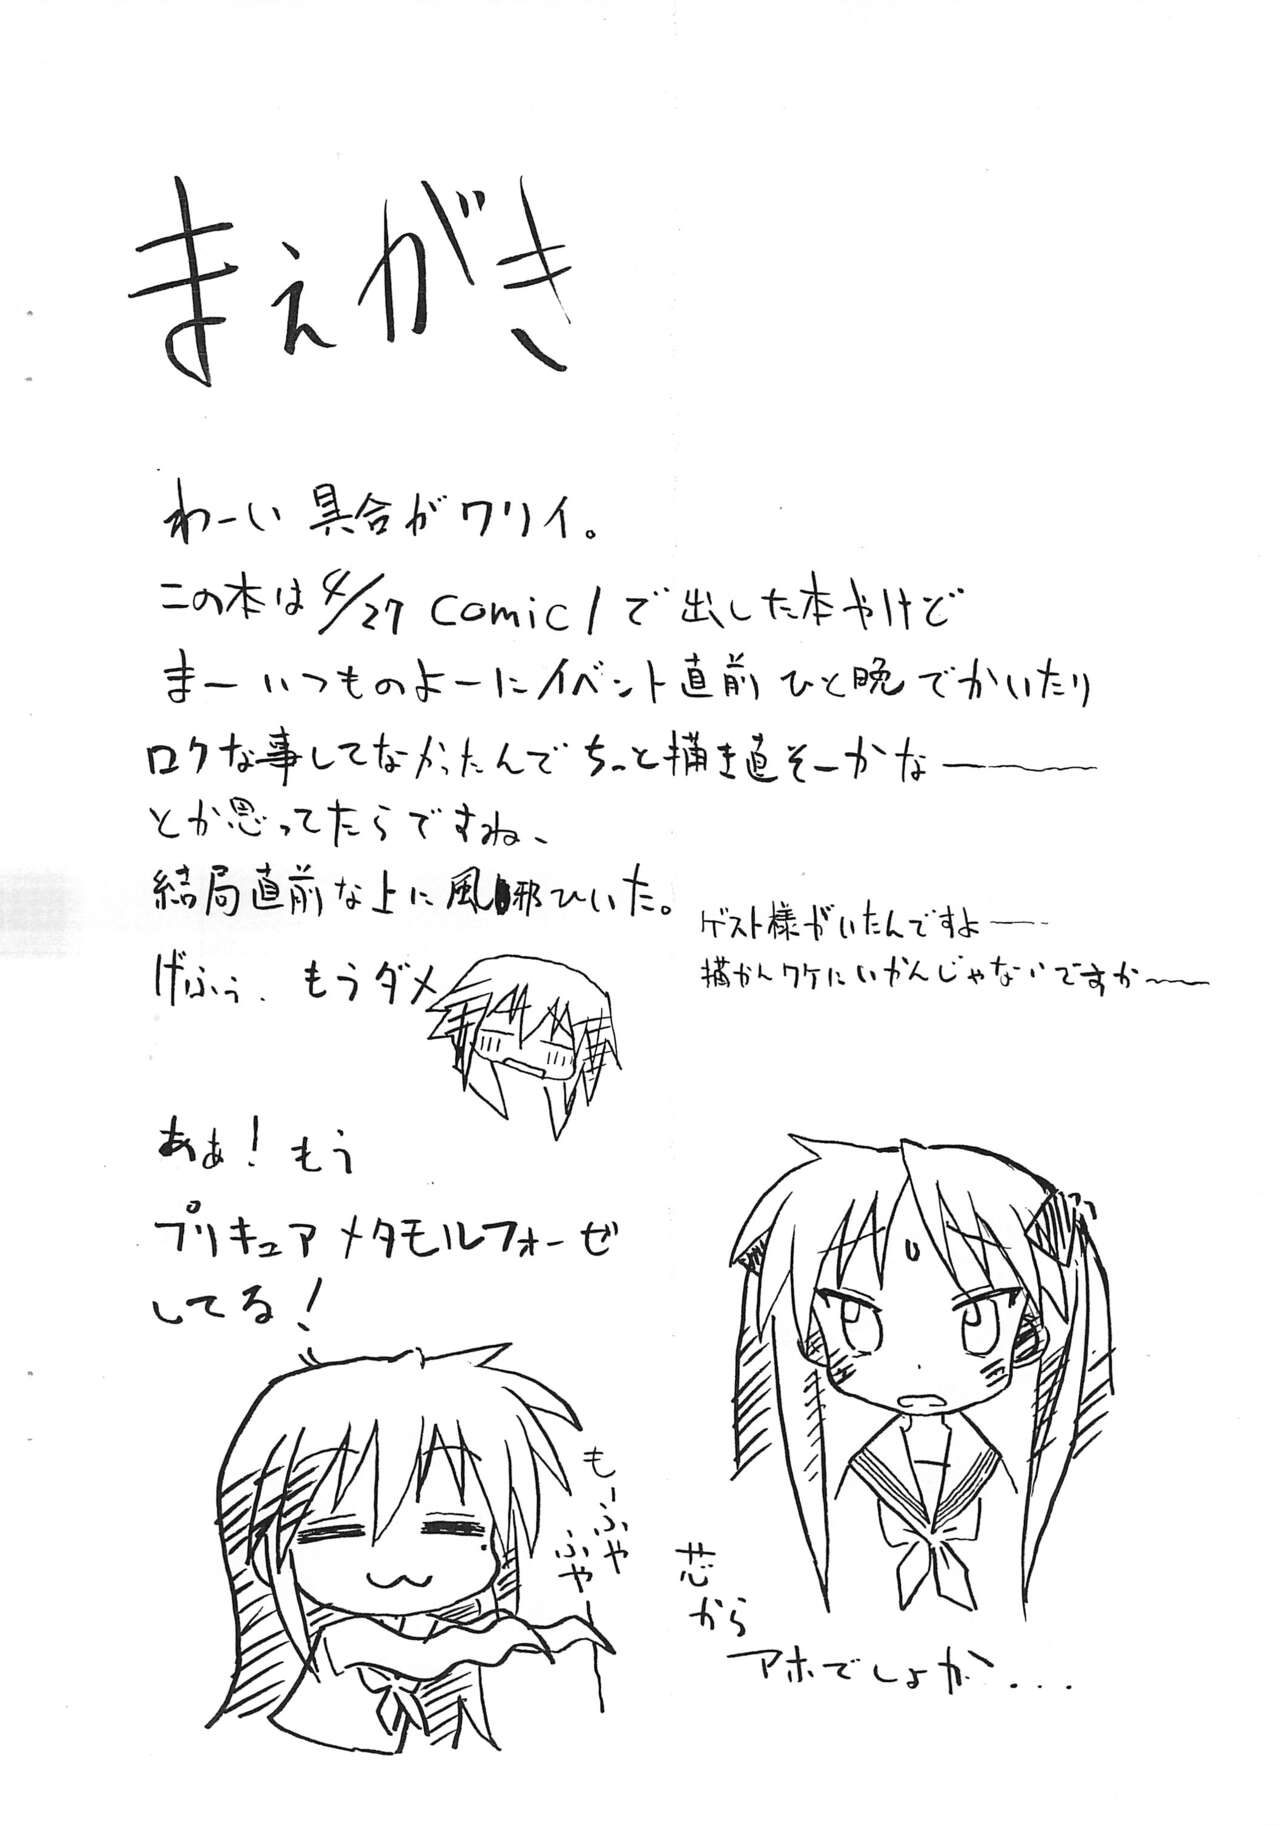 まえがき
わーい 具合がワリイ。
この本は4/27 comic1で出した本やけど
まーいつものよーにイベント直前ひと晩でかいたり
ロクな事してなかったんでちっと描き直そーかな―――
とか思ってたらですね、
結局直前な上に風邪ひいた。
ゲスト様がいたんですよ――
描かんワケにいかんじゃないですか――
げふぅ、もうダメ
あぁ!もう
プリキュアメタモルフォーゼ
してる!
もーふや
ふやー
芯から
アホでしょか...